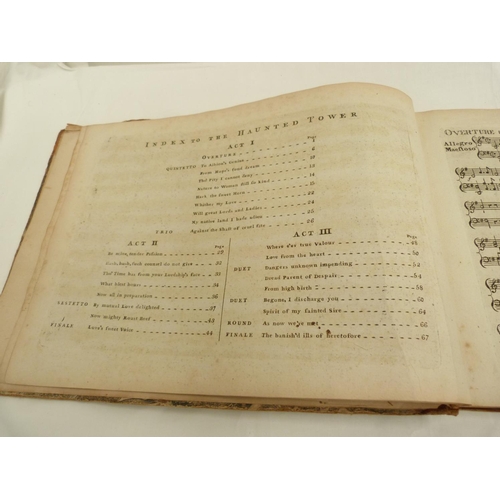 INDEX TO THE HAUNTED TOWER
ACT I
Page
OVERTURE 1
QUINTETTO To Albion's Genius 6
From Hope's fond dream 10
Tho' Pity I cannot deny 14
Nature to Woman still so kind 15
Hark the sweet Horn
Whither my Love 22
Will great Lords and Ladies 24
My native land I bade adieu 25
TRIO Against the shaft of cruel fate 26
ACT II
Page
Be mine, tender Passion 27
Hush, hush, such counsel do not give 30
Tho' Time has from your Lordship's face 31
What blest hours 34
Now all in preparation 36
SESTETTO By mutual Love delighted 37
Now mighty Roast Beef 43
FINALE Love's sweet Voice 44
ACT III
Page
Where e'er true Valour 48
Love from the heart 50
DUET Dangers unknown impending 52
Dread Parent of Despair 54
From high birth 58
DUET Begone, I discharge you 60
Spirit of my sainted Sire 64
ROUND As now we're met 66
FINALE The banish'd ills of heretofore 67
OVERTURE
Allegro
Maestoso